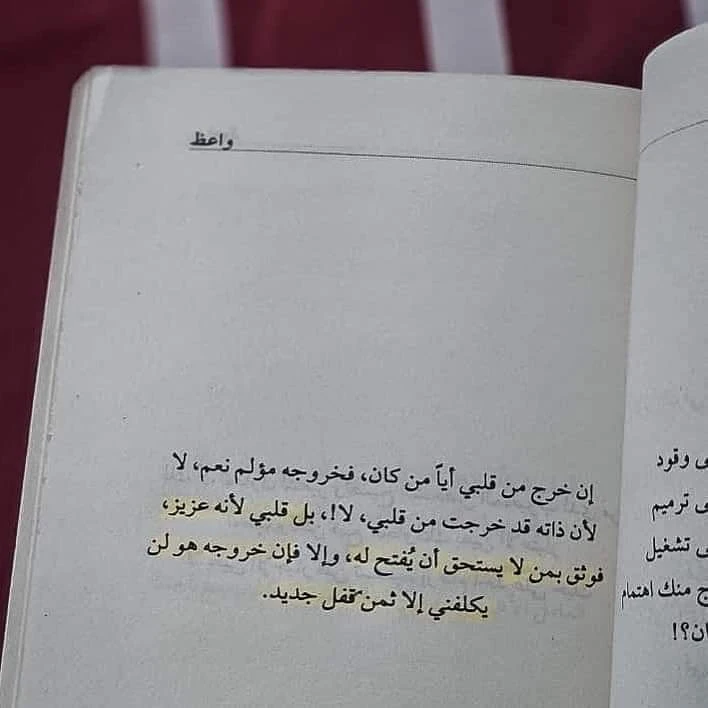 واعظ
إن خرج من قلبي أياً من كان، فخروجه مؤلم نعم، لا
لأن ذاته قد خرجت من قلبي، لا!، بل قلبي لأنه عزيز،
فوثق بمن لا يستحق أن يُفتح له، وإلا فإن خروجه هو لن
يكلفني إلا ثمن قفل جديد.
ى وقود
ى ترميم
ى تشغيل
ج منك اهتمام
ان؟!